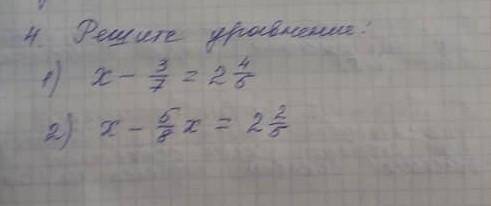 4. Решите уравнение:
1) x - 3/7 = 2 4/5
2) x - 5/8 x = 2 2/5